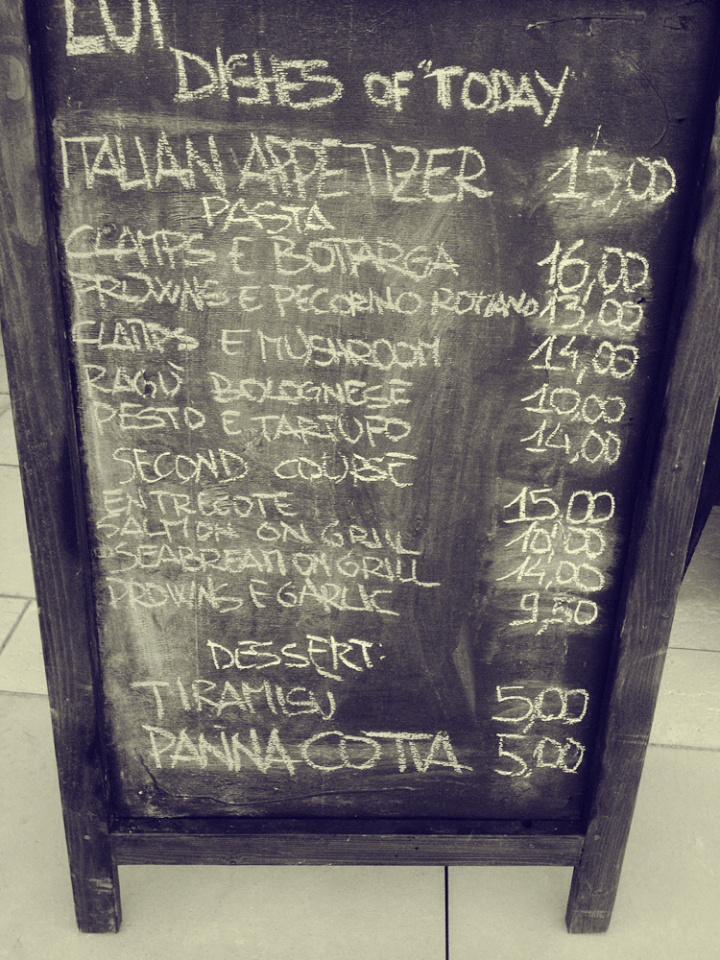 LUI
DISHES OF "TODAY
ITALIAN APPETIZER 15,00
PASTA
CLAMPS E BOTTARGA 16,00
PROWNS E PECORINO ROMANO 13,00
CLAMPS E MUSHROOM 14,00
RAGÙ BOLOGNESE 10,00
PESTO E TARTUFO 14,00
SECOND COURSE
ENTRECOTE 15,00
SALMON ON GRILL 10,00
SEABREAM ON GRILL 14,00
PROWNS E GARLIC 9,50
DESSERT:
TIRAMISU 5,00
PANNA COTTA 5,00